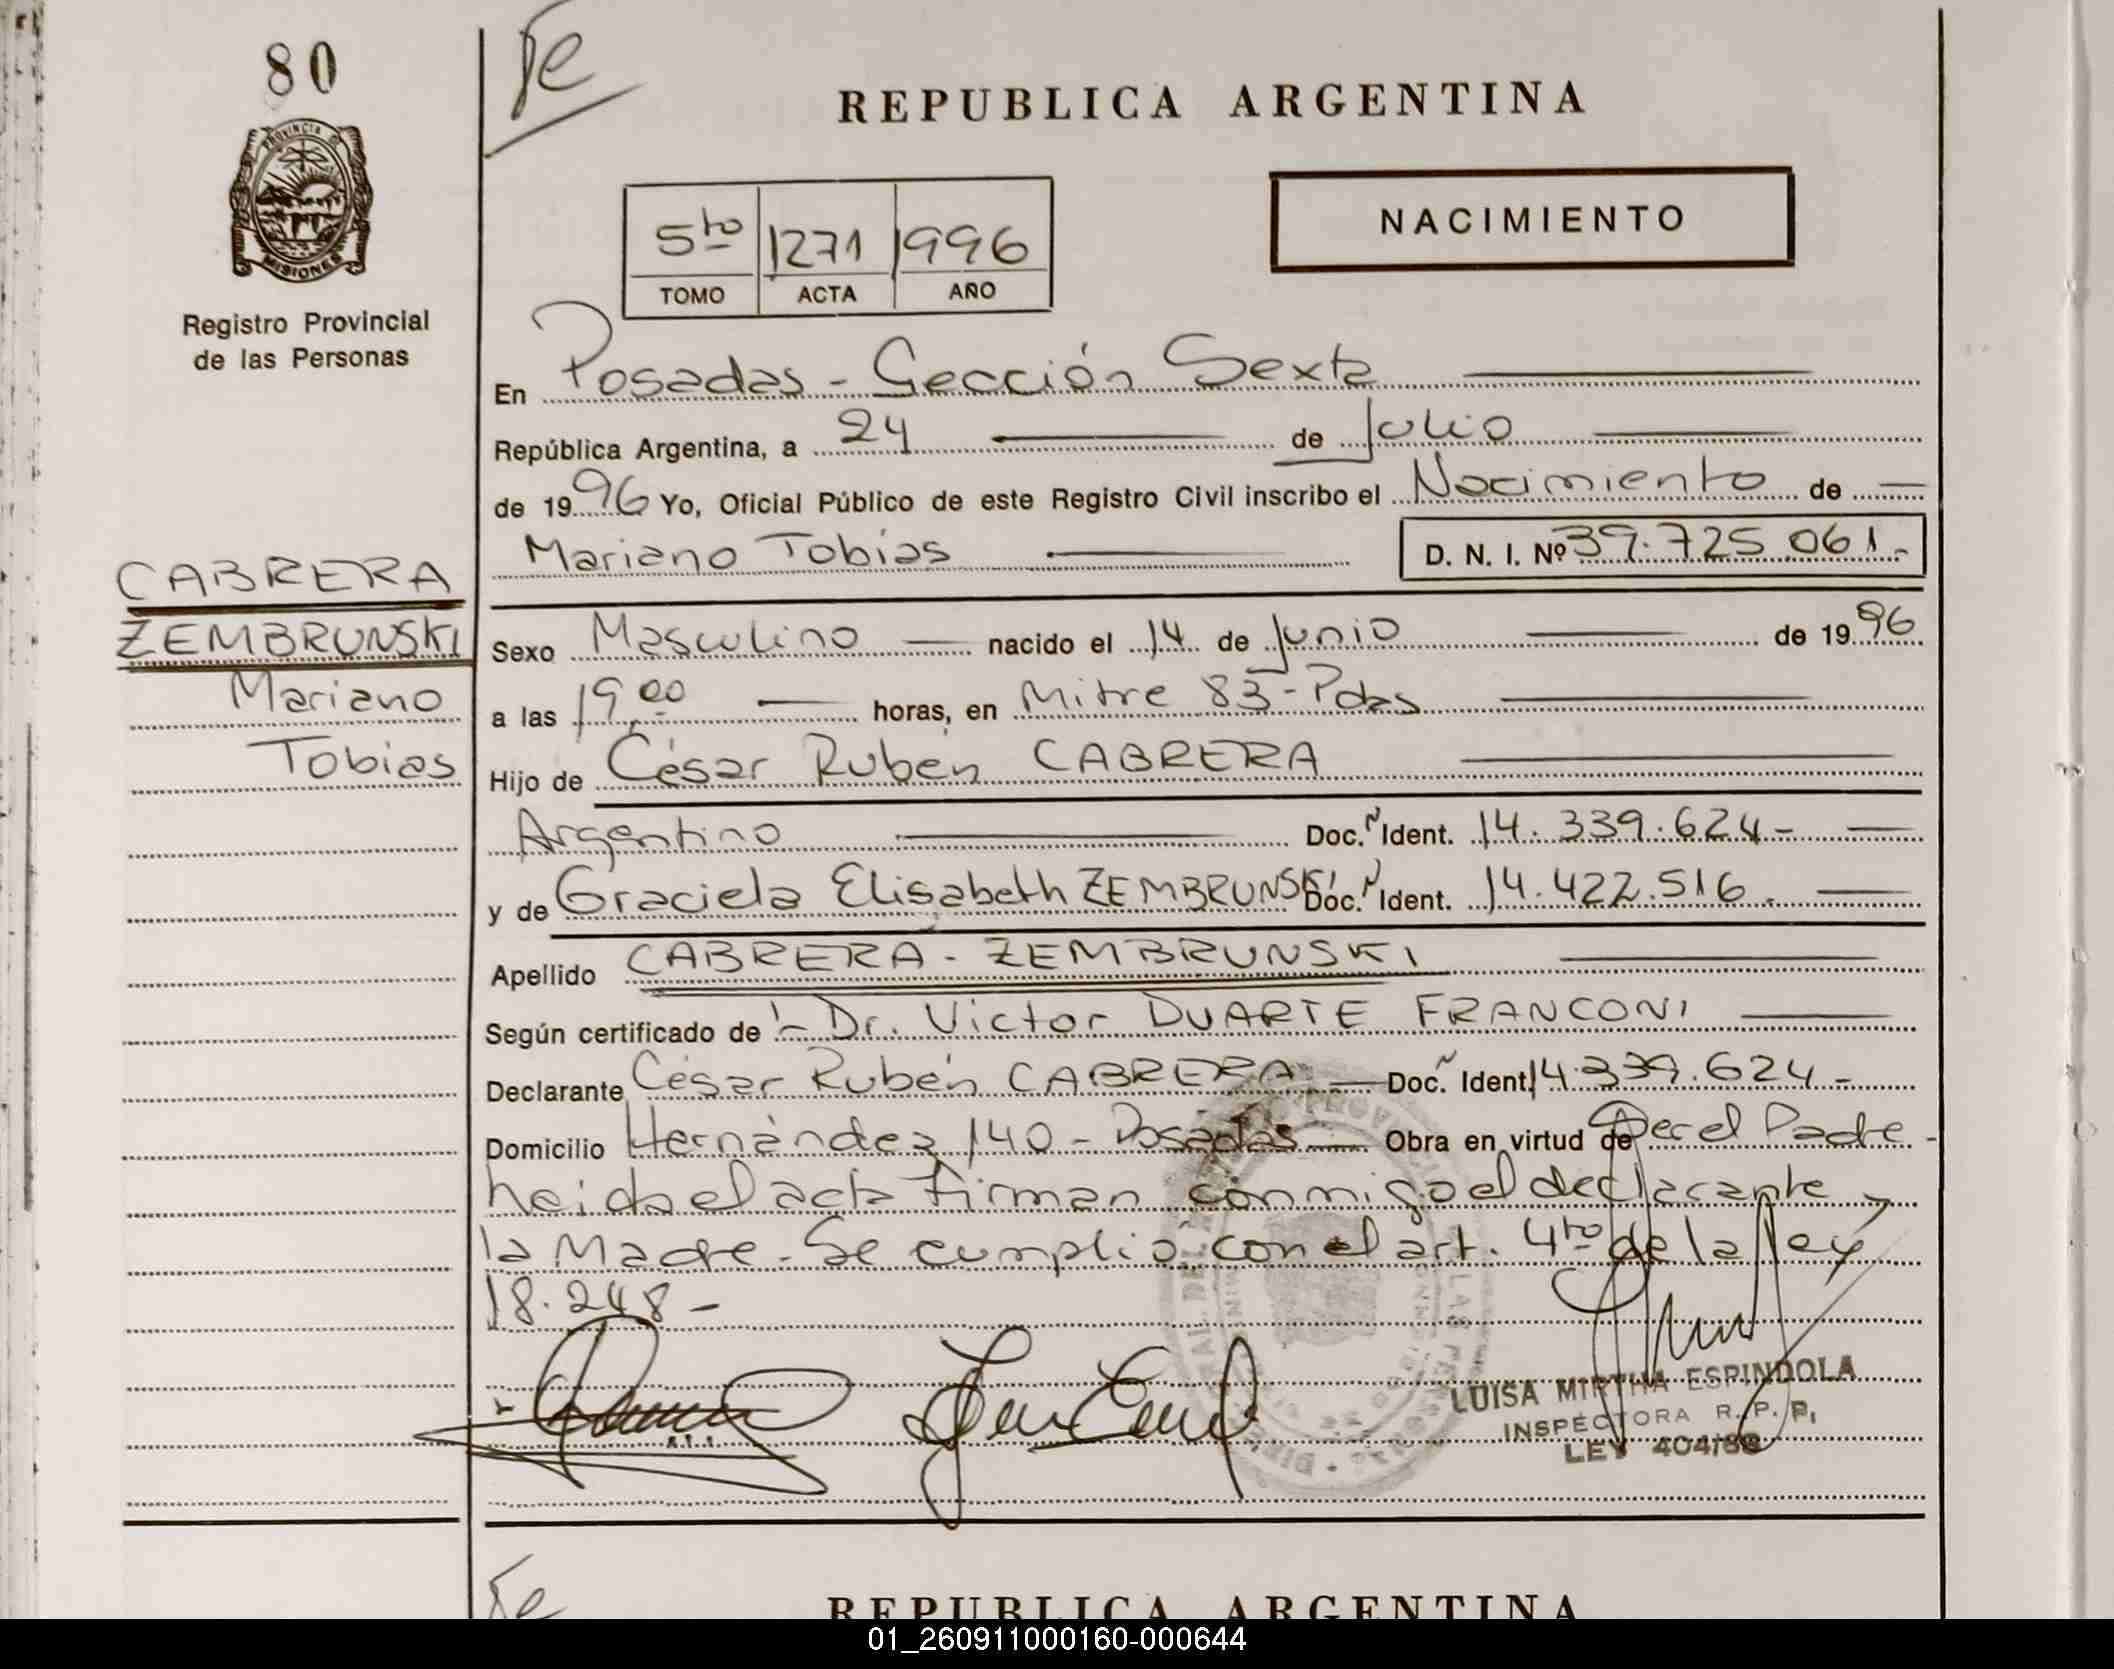 80
Te
REPUBLICA ARGENTINA
PROVINCIA DE
MISIONES
Registro Provincial
de las Personas
NACIMIENTO
5to 1271 1996
TOMO ACTA AÑO
En Posadas - Sección Sexta
República Argentina, a 24 de Julio
de 1996 Yo, Oficial Público de este Registro Civil inscribo el Nacimiento de
Mariano Tobias D. N. I. Nº 39.725.061.-
CABRERA
ZEMBRUNSKI
Mariano
Tobias
Sexo Masculino nacido el 14 de Junio de 1996
a las 19,00 horas, en Mitre 83-Pdas
Hijo de César Rubén CABRERA
Argentino Doc. Ident. 14.339.624-
y de Graciela Elisabeth ZEMBRUNSKI Doc. Ident. 14.422.516.
Apellido CABRERA - ZEMBRUNSKI
Según certificado de :- Dr. Victor DUARTE FRANCONI
Declarante César Rubén CABRERA Doc. Ident. 14.339.624-
Domicilio Hernández 140 - Posadas Obra en virtud de Ser el Padre -
Leida el acta firman conmigo el declarante y
la Madre - Se cumplió con el art. 4to de la ley
18.248-
LUISA MIRTHA ESPINDOLA
INSPECTORA R. P. P.
LEY 404/88
Te
REPUBLICA ARGENTINA
01_260911000160-000644